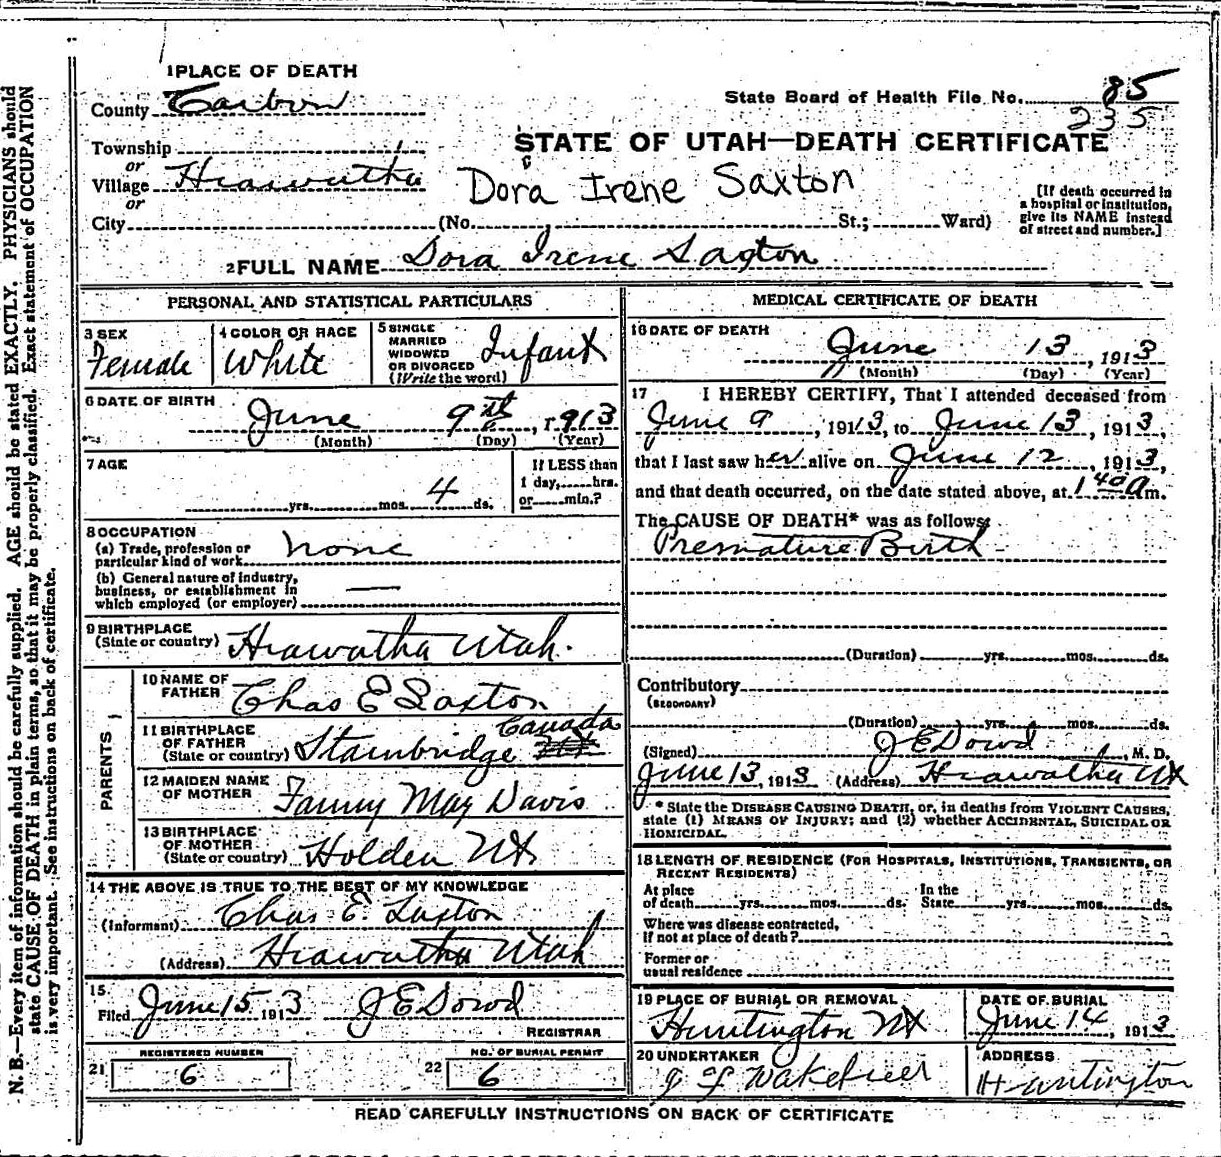 1 PLACE OF DEATH
County Carbon
State Board of Health File No. 85
235
Township
STATE OF UTAH—DEATH CERTIFICATE
or
Village Hiawatha
Dora Irene Saxton
or
City (No. St.; Ward)
[If death occurred in
a hospital or institution,
give its NAME instead
of street and number.]
2 FULL NAME Dora Irene Saxton
PERSONAL AND STATISTICAL PARTICULARS
3 SEX
Female
4 COLOR OR RACE
White
5 SINGLE
MARRIED
WIDOWED
OR DIVORCED
(Write the word)
Infant
6 DATE OF BIRTH
June 9th, 1913
(Month) (Day) (Year)
7 AGE
yrs. mos. 4 ds.
If LESS than
1 day, hrs.
or min.?
8 OCCUPATION
(a) Trade, profession or
particular kind of work none
(b) General nature of industry,
business, or establishment in
which employed (or employer) —
9 BIRTHPLACE
(State or country) Hiawatha Utah.
PARENTS
10 NAME OF
FATHER Chas E Saxton
11 BIRTHPLACE
OF FATHER
(State or country) Stanbridge Canada
12 MAIDEN NAME
OF MOTHER Fanny May Davis
13 BIRTHPLACE
OF MOTHER
(State or country) Holden Ut
14 THE ABOVE IS TRUE TO THE BEST OF MY KNOWLEDGE
(Informant) Chas E. Saxton
(Address) Hiawatha Utah
15
Filed June 15 1913 J E Dowd
REGISTRAR
21 REGISTERED NUMBER
6
22 NO. OF BURIAL PERMIT
6
MEDICAL CERTIFICATE OF DEATH
16 DATE OF DEATH
June 13, 1913
(Month) (Day) (Year)
17 I HEREBY CERTIFY, That I attended deceased from
June 9, 1913, to June 13, 1913,
that I last saw her alive on June 12, 1913,
and that death occurred, on the date stated above, at 1 40 a m.
The CAUSE OF DEATH* was as follows:
Premature Birth
(Duration) yrs. mos. ds.
Contributory
(SECONDARY)
(Duration) yrs. mos. ds.
(Signed) J E Dowd, M. D.
June 13, 1913 (Address) Hiawatha Ut
* State the DISEASE CAUSING DEATH, or, in deaths from VIOLENT CAUSES,
state (1) MEANS OF INJURY; and (2) whether ACCIDENTAL, SUICIDAL OR
HOMICIDAL.
18 LENGTH OF RESIDENCE (FOR HOSPITALS, INSTITUTIONS, TRANSIENTS, OR
RECENT RESIDENTS)
At place
of death yrs. mos. ds.
In the
State yrs. mos. ds.
Where was disease contracted,
If not at place of death?
Former or
usual residence
19 PLACE OF BURIAL OR REMOVAL
Huntington Ut
DATE OF BURIAL
June 14, 1913
20 UNDERTAKER
ADDRESS
Huntington
READ CAREFULLY INSTRUCTIONS ON BACK OF CERTIFICATE
N. B.—Every item of information should be carefully supplied. AGE should be stated EXACTLY. PHYSICIANS should
state CAUSE OF DEATH in plain terms, so that it may be properly classified. Exact statement of OCCUPATION
is very important. See instructions on back of certificate.